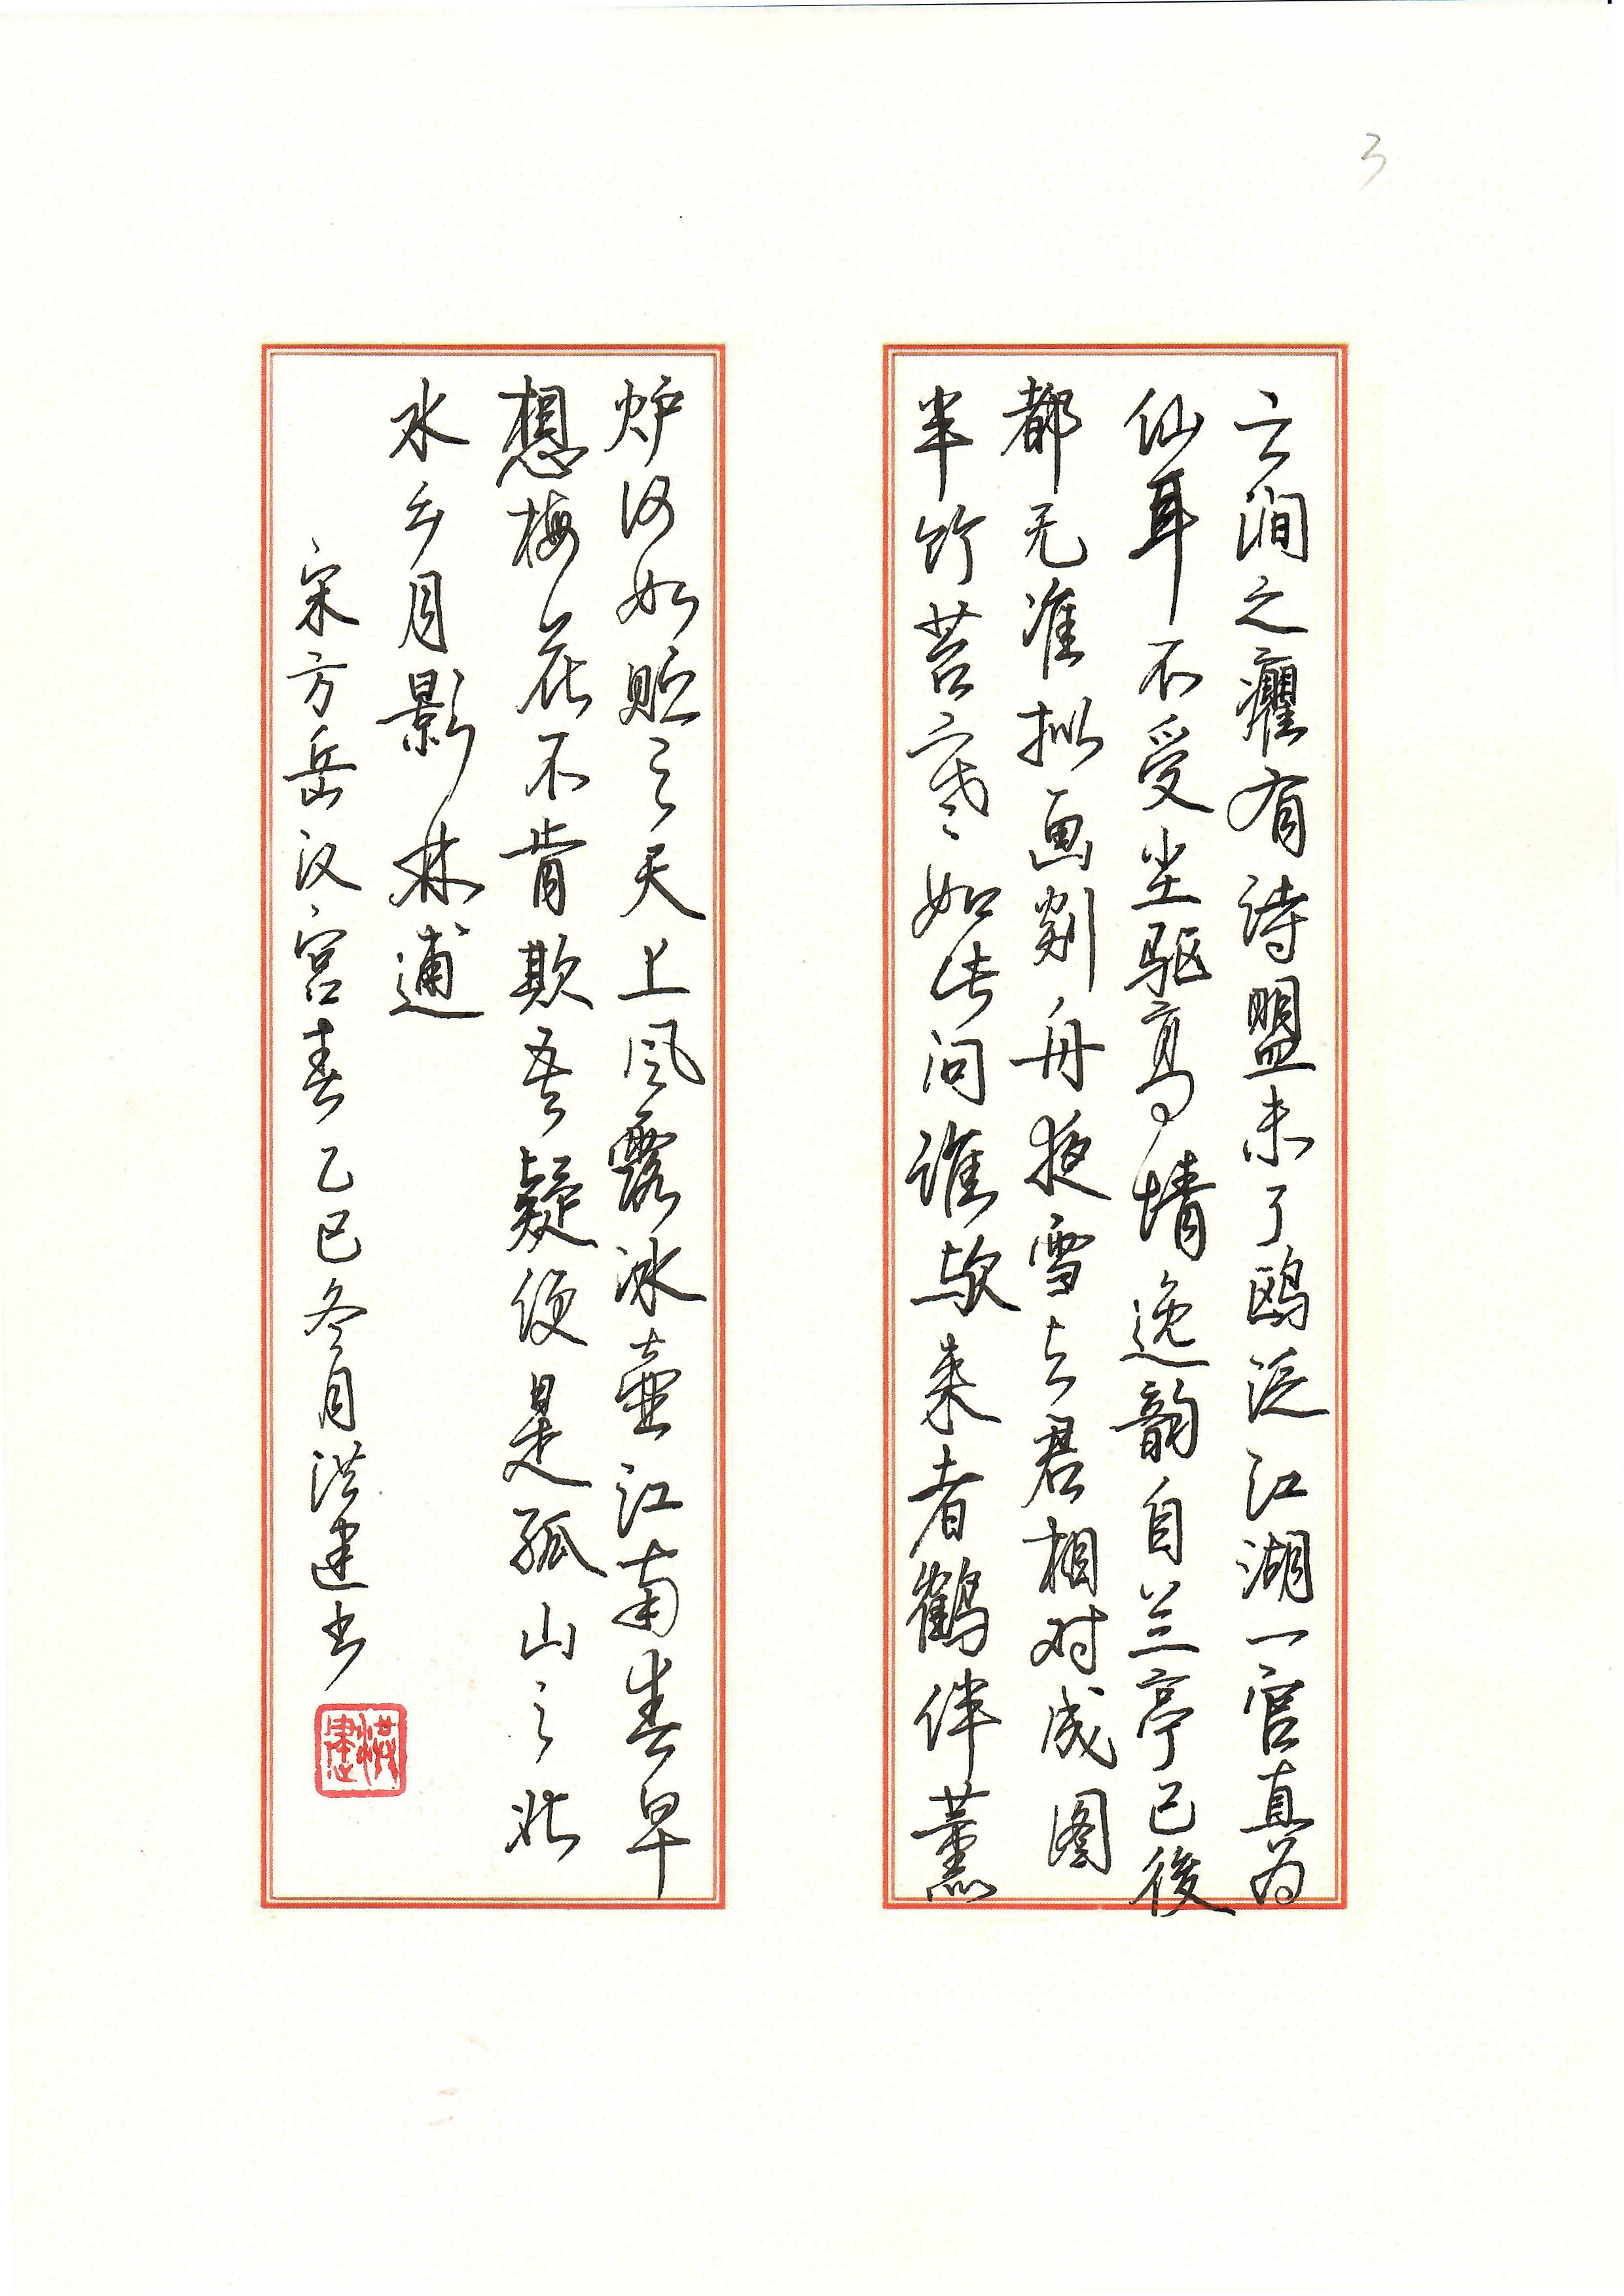 3
云涧之癯有诗盟未了鸥泛江湖一官直为
仙耳不受尘驱高情逸韵自兰亭已後
都无准拟画剡舟夜雪与君相对成图
半竹苔寒如此问谁欤来者鹤伴薰
炉何如贮之天上风露冰壶江南春早
想梅花不肯欺吾疑便是孤山之北
水乡月影林逋
宋方岳汉宫春乙巳冬月洪建书
洪建